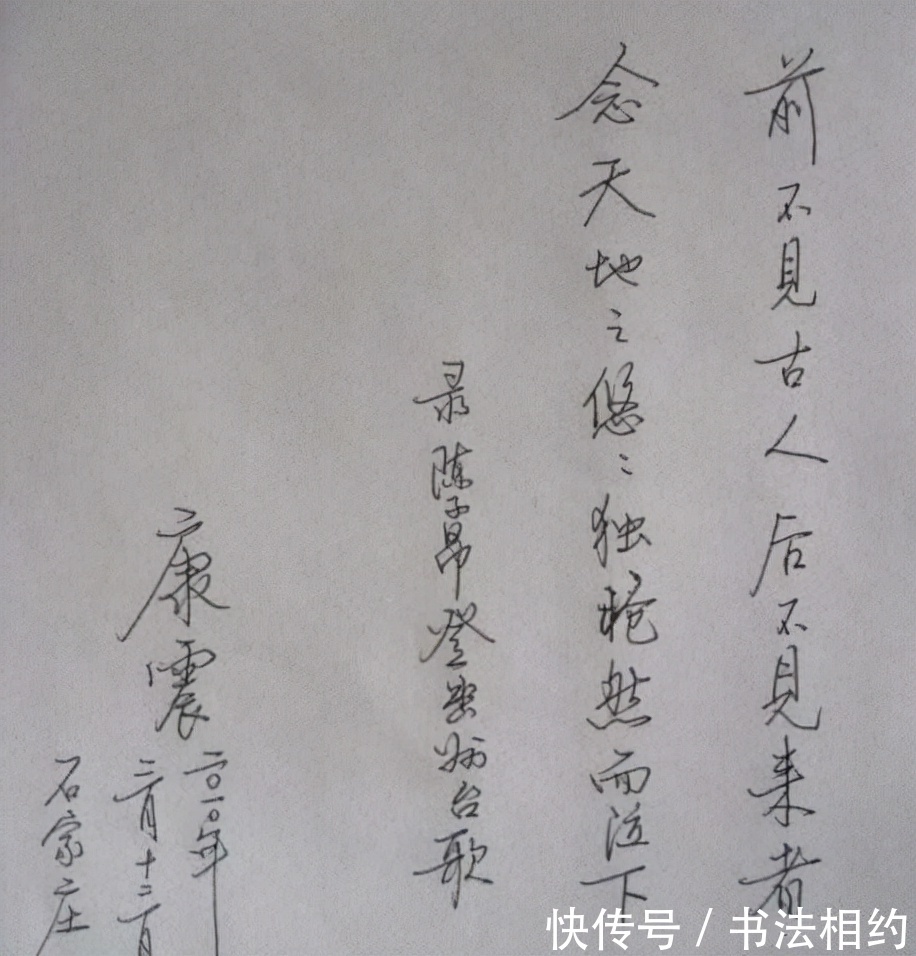 前不見古人后不見来者
念天地之悠々独怆然而泣下
录陈子昂登幽州台歌
康震
二〇一〇年
三月十二日
石家庄
快传号 / 书法相约